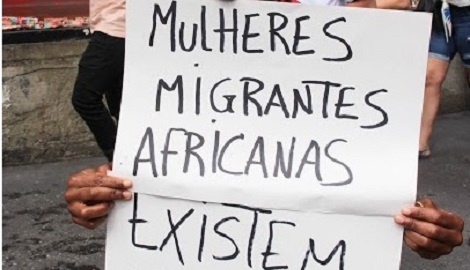 MULHERES
MIGRANTES
AFRICANAS
EXISTEM